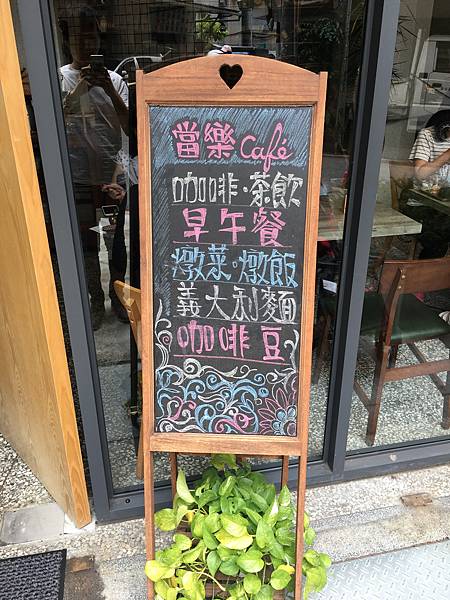 當樂 Café
咖啡·茶飲
早午餐
燉菜·燉飯
義大利麵
咖啡豆